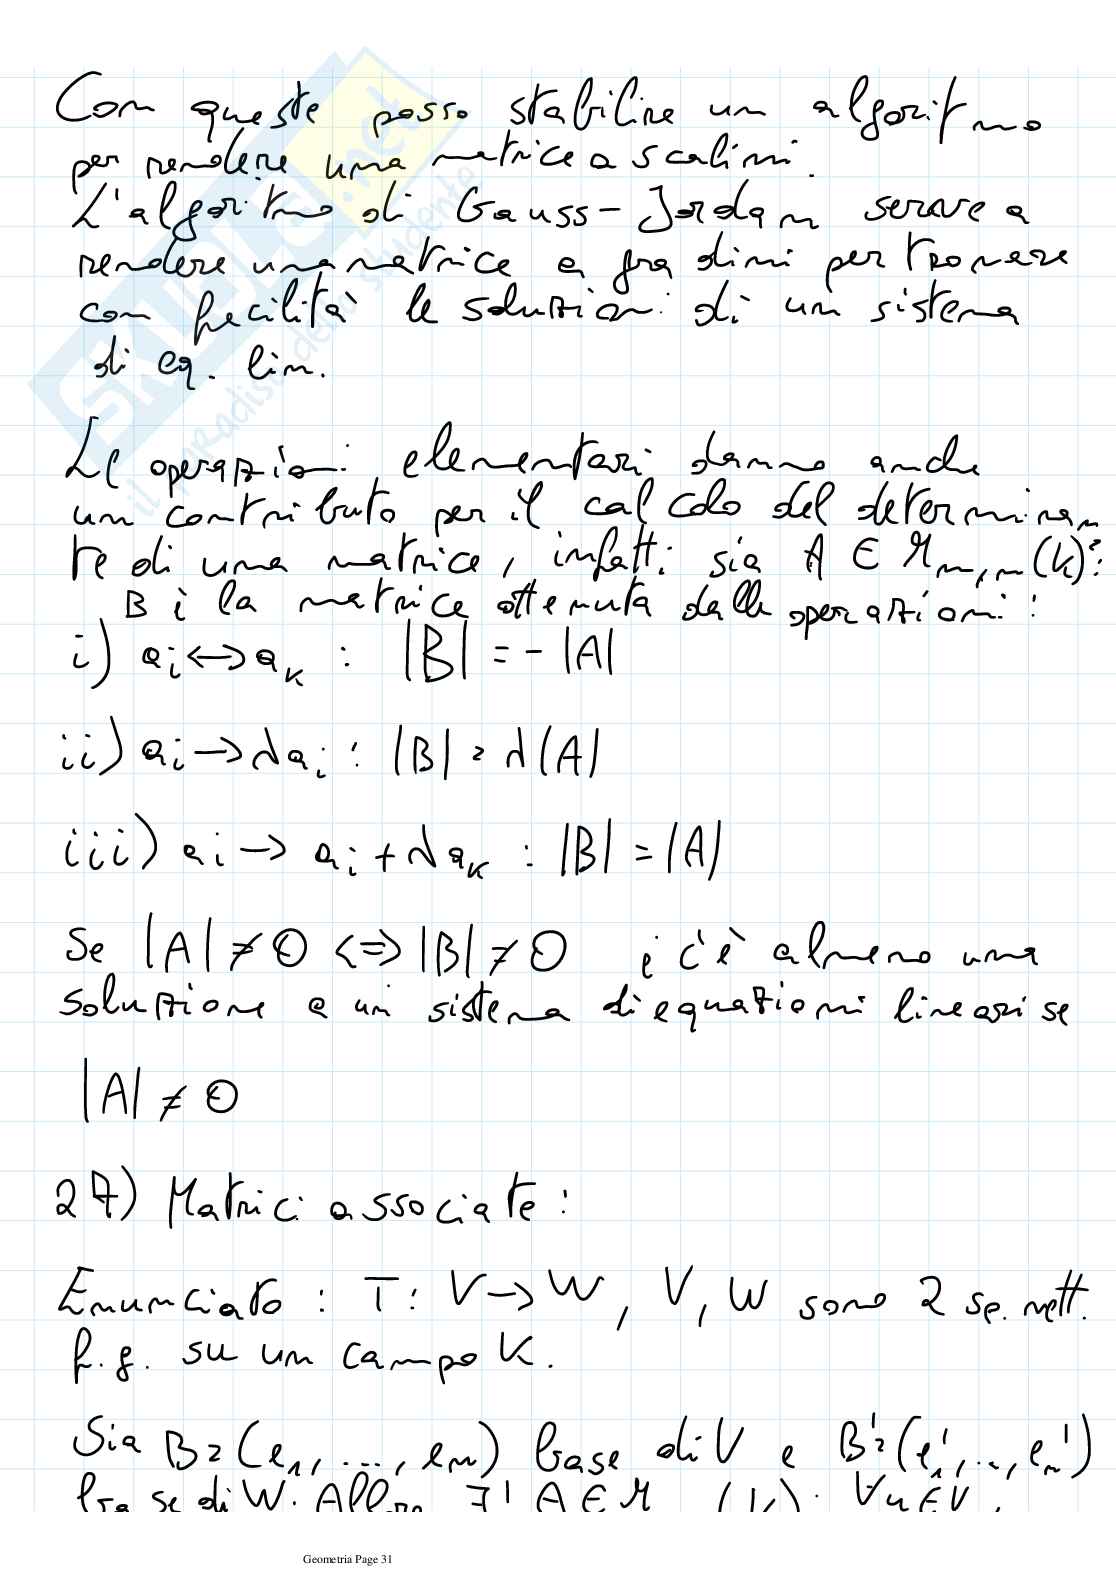 Con queste posso stabilire un algoritmo
per rendere una matrice a scalini.
L'algoritmo di Gauss-Jordan serve a
rendere una matrice a gradini per trovare
con facilità le soluzioni di un sistema
di eq. lin.
Le operazioni elementari danno anche
un contributo per il calcolo del determinan
te di una matrice, infatti sia A ∈ M_{n,n}(K):
B è la matrice ottenuta dalle operazioni:
i) a_i ↔ a_k : |B| = -|A|
ii) a_i → λa_i : |B| = λ|A|
iii) a_i → a_i + λa_k : |B| = |A|
Se |A| ≠ 0 <=> |B| ≠ 0 e c'è almeno una
soluzione a un sistema di equazioni lineari se
|A| ≠ 0
27) Matrici associate:
Enunciato : T: V → W, V, W sono 2 sp. vett.
f.g. su un campo K.
Sia B=(e_1, ..., e_n) base di V e B'=(e'_1, .., e_m')
base di W. Allora ∃! A ∈ M (K): ∀u∈V,
SKUOLA.net
il paradiso dello studente
Geometria Page 31